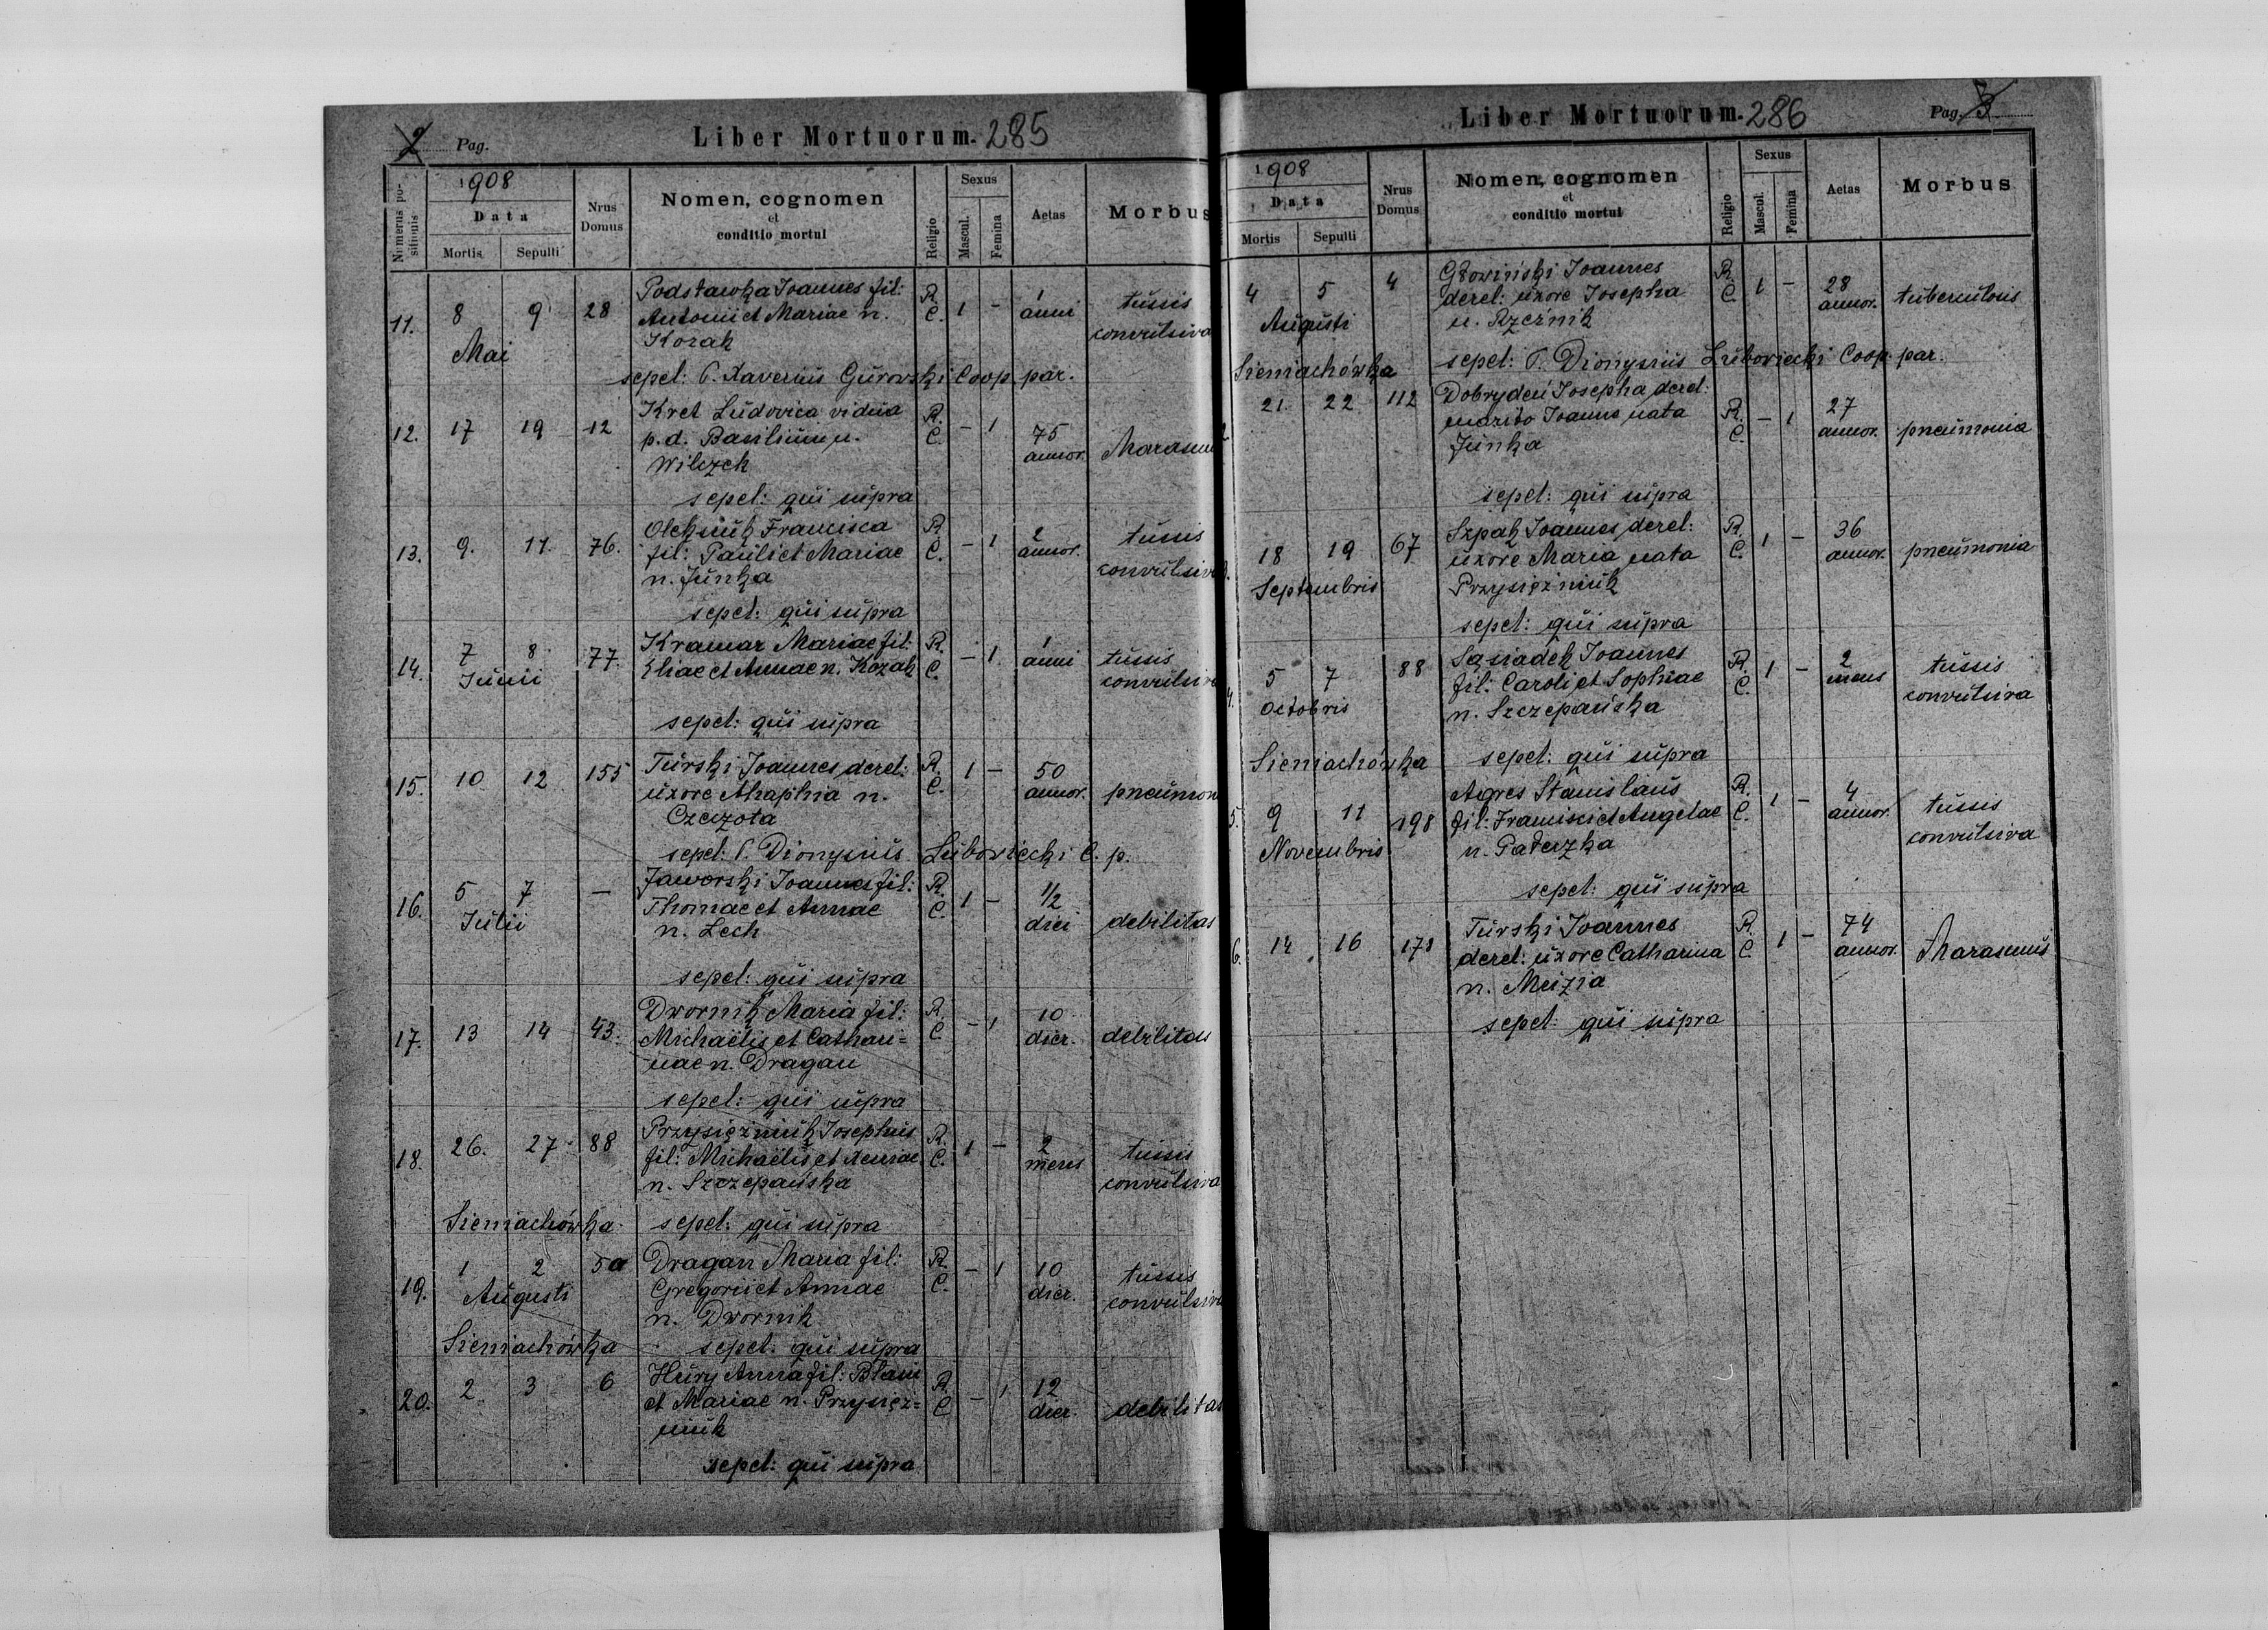 2 Pag. Liber Mortuorum. 285
Numerus positionis
1908
Data
Mortis Sepulti
Nrus Domus
Nomen, cognomen
et
conditio mortui
Religio
Sexus
Mascul. Femina
Aetas
Morbus
11. 8 9 28 Podstawka Joannes fil: R. 1 - 1 tussis
Mai Antonii et Mariae n. C. anni convulsiva
Kozak
sepel: P. Xaverius Gurowski Coop. par.
12. 17 19 12 Kret Ludovica vidua R. - 1 75
p. d. Basilium n. C. annor. Marasmu
Wilczek
sepel: qui supra
13. 9. 11. 76. Oleksiuk Francisca R. - 1 2 tussis
fil: Pauli et Mariae C. annor. convulsiva
n. Junka
sepel: qui supra
14. 7 8 77. Kramar Mariae fil: R. - 1. 1 tussis
Junii Eliae et Annae n. Kozak C. anni convulsiva
sepel: qui supra
15. 10 12 155 Turski Joannes derel: R. 1 - 50
uxore Ahaphia n. C. annor. pneumon
Czeczota
sepel: P. Dionysius Lubowiecki C. p.
16. 5 7 - Jaworski Joannes fil: R. 1 - 1/2
Julii Thomae et Annae C. diei debilitas
n. Lech
sepel: qui supra
17. 13 14 43. Dwornik Maria fil: R. - 1 10
Michaëlis et Cathari= C. dier. debilitas
nae n. Dragan
sepel: qui supra
18. 26. 27 88 Przysiężniuk Josephus R. 1 - 2 tussis
fil: Michaëlis et Xeniae C. mens convulsiva
n. Szczepańska
Sieniachówka sepel: qui supra
19. 1 2 50 Dragan Maria fil: R. - 1 10 tussis
Augusti Gregorii et Annae C. dier. convulsiva
n. Dwornik
Sieniachówka sepel: qui supra
20. 2 3 6 Hury Anna fil: Blasii R. - 1 12
et Mariae n. Przysięż= C. dier. debilitas
niuk
sepel: qui supra
Liber Mortuorum. 286 Pag. 3
1908
Data
Mortis Sepulti
Nrus Domus
Nomen, cognomen
et
conditio mortui
Religio
Sexus
Mascul. Femina
Aetas
Morbus
4 5 4 Głowiński Joannes R. 1 - 28
Augusti derel: uxore Josepha C. annor. tuberculosis
n. Rzeźnik
Sieniachówka sepel: P. Dionysius Lubowiecki Coop. par.
21. 22 112 Dobrydeń Josepha derel: R. - 1 27
marito Joanne nata C. annor. pneumonia
Junka
sepel: qui supra
18 19 67 Szpak Joannes derel: R. 1 - 36
Septembris uxore Maria nata C. annor. pneumonia
Przysiężniuk
sepel: qui supra
4. 5 7 88 Sąsiadek Joannes R. 1 - 2 tussis
Octobris fil: Caroli et Sophiae C. mens convulsiva
n. Szczepańska
Sieniachówka sepel: qui supra
5. 9 11 198 Agres Stanislaus R. 1 - 4 tussis
Novembris fil: Francisci et Angelae C. annor. convulsiva
n. Pałeczka
sepel: qui supra
6. 14 16 178 Turski Joannes R. 1 - 74
derel: uxore Catharina C. annor. Marasmus
n. Meizia
sepel: qui supra